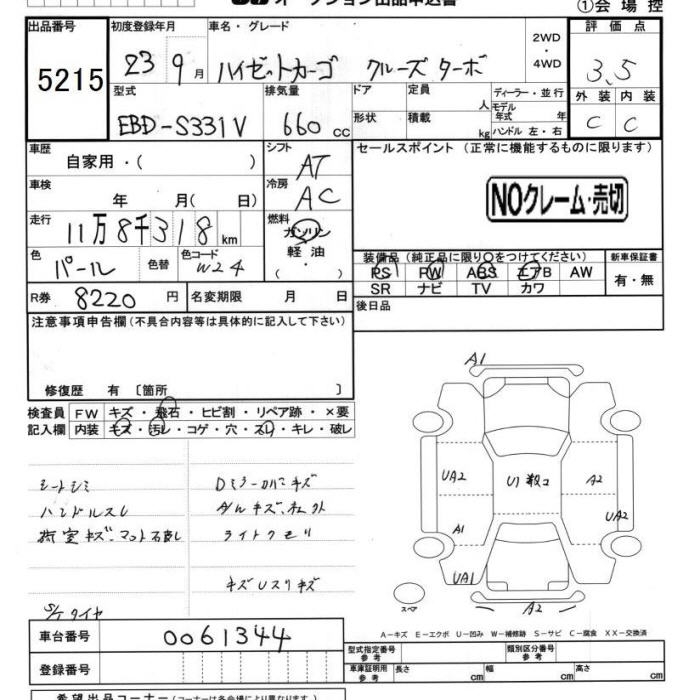 オークション出品申込書
①会場控
出品番号 初度登録年月 車名・グレード 評価点
5215 23 9月 ハイゼットカーゴ クルーズ ターボ 2WD・4WD 3.5
型式 排気量 ドア 定員 人 ディーラー・並行 外装 内装
EBD-S331V 660cc 形状 積載 kg モデル年式 年 ハンドル 左・右 C C
車歴 自家用・( ) シフト AT セールスポイント (正常に機能するものに限ります)
車検 年 月( 日) 冷房 AC NOクレーム・売切
走行 11万8千318km 燃料 ガソリン
色 パール 色替 色コード W24 軽油・( )
装備品 (純正品に限り○をつけてください) 新車保証書
PS PW ABS エアB AW 有・無
SR ナビ TV カワ
R券 8220円 名変期限 月 日 後日品
注意事項申告欄(不具合内容等は具体的に記入して下さい)
修復歴 有 〔箇所 〕
検査員 FW キズ・飛石・ヒビ割・リペア跡・×要
記入欄 内装 キズ・汚レ・コゲ・穴・スレ・キレ・破レ
シートシミ
ハンドルスレ
Dミラーカバーキズ
ライトクモリ
S/Tタイヤ
A1
UA2
U1
A2
A1
UA2
UA1
A2
スペア
A-キズ E-エクボ U-凹み W-補修跡 S-サビ C-腐食 XX-交換済
車台番号 0061344
型式指定番号 参考 類別区分番号 参考
登録番号 車庫証明用 参考 長さ cm 幅 cm 高さ cm
希望出品コーナー(コーナーは各会場により異なります。)